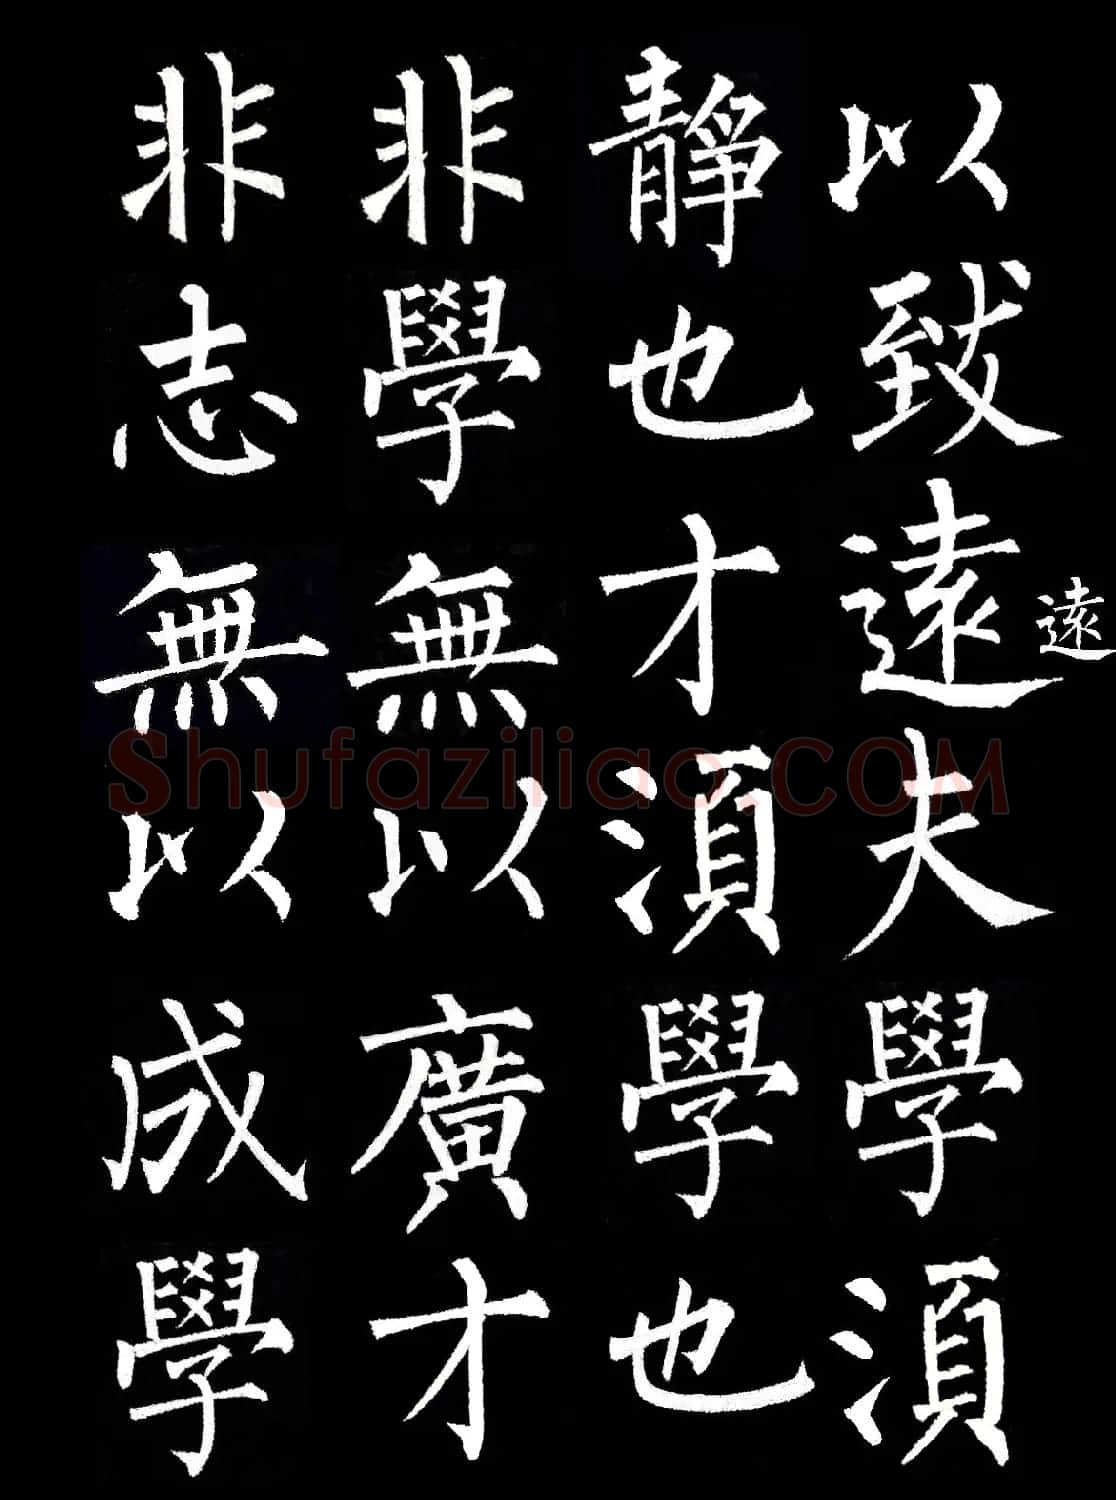 遠
以致遠夫學湏
靜也才湏學也
非學無以廣才
非志無以成學
Shufaziliao.COM